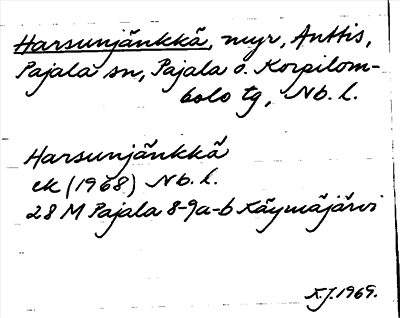 Harsunjänkkä, myr, Anttis,
Pajala sn, Pajala o. Korpilom-
bolo tg, Nb. l.
Harsunjänkkä
ek (1968) Nb. l.
28 M Pajala 8-9a-b Käymäjärvi
K.J. 1969.